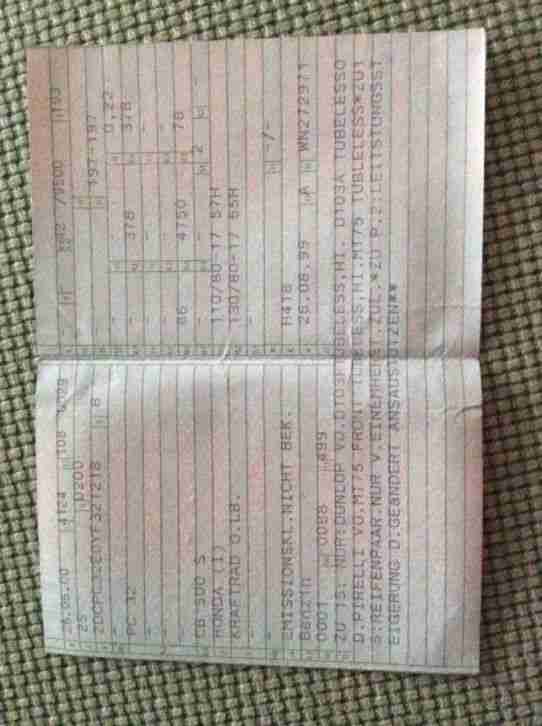 26.05.00 4124 108
25 0200
B
PC 32
CB 500 S
HONDA (I)
KRAFTRAD O.LB.
EMISSIONSKL.NICHT BEK.
Benzin
0001 0088 499
/9500
197-197
0,22
378 378
86 4750 78
2
110/80-17 57H
130/80-17 55H
-/-
H418
26.08.99 A WN272971
ZU 15: NUR:DUNLOP VO.D103 TUBELESS,HI. D103A TUBELESSO
D.PIRELLI VO.MT75 FRONT TUBELESS,HI.MT75 TUBLELESS*ZU1
5:REIFENPAAR NUR V.EINEM HERST.ZUL.*ZU P.2:LEITSTUNGSST
EIGERUNG D.GEÄNDERT ANSAUGSTUTZEN**